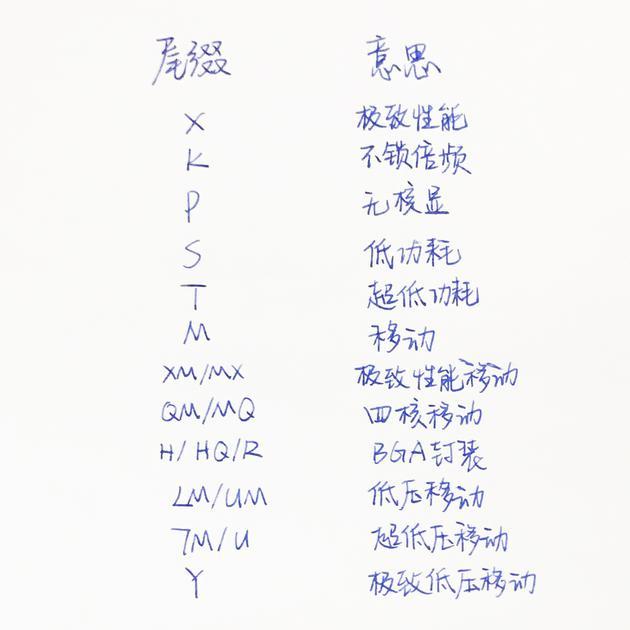 尾缀 意思
X 极致性能
K 不锁倍频
P 无核显
S 低功耗
T 超低功耗
M 移动
XM/MX 极致性能移动
QM/MQ 四核移动
H/HQ/R BGA封装
LM/UM 低压移动
7M/U 超低压移动
Y 极致低压移动